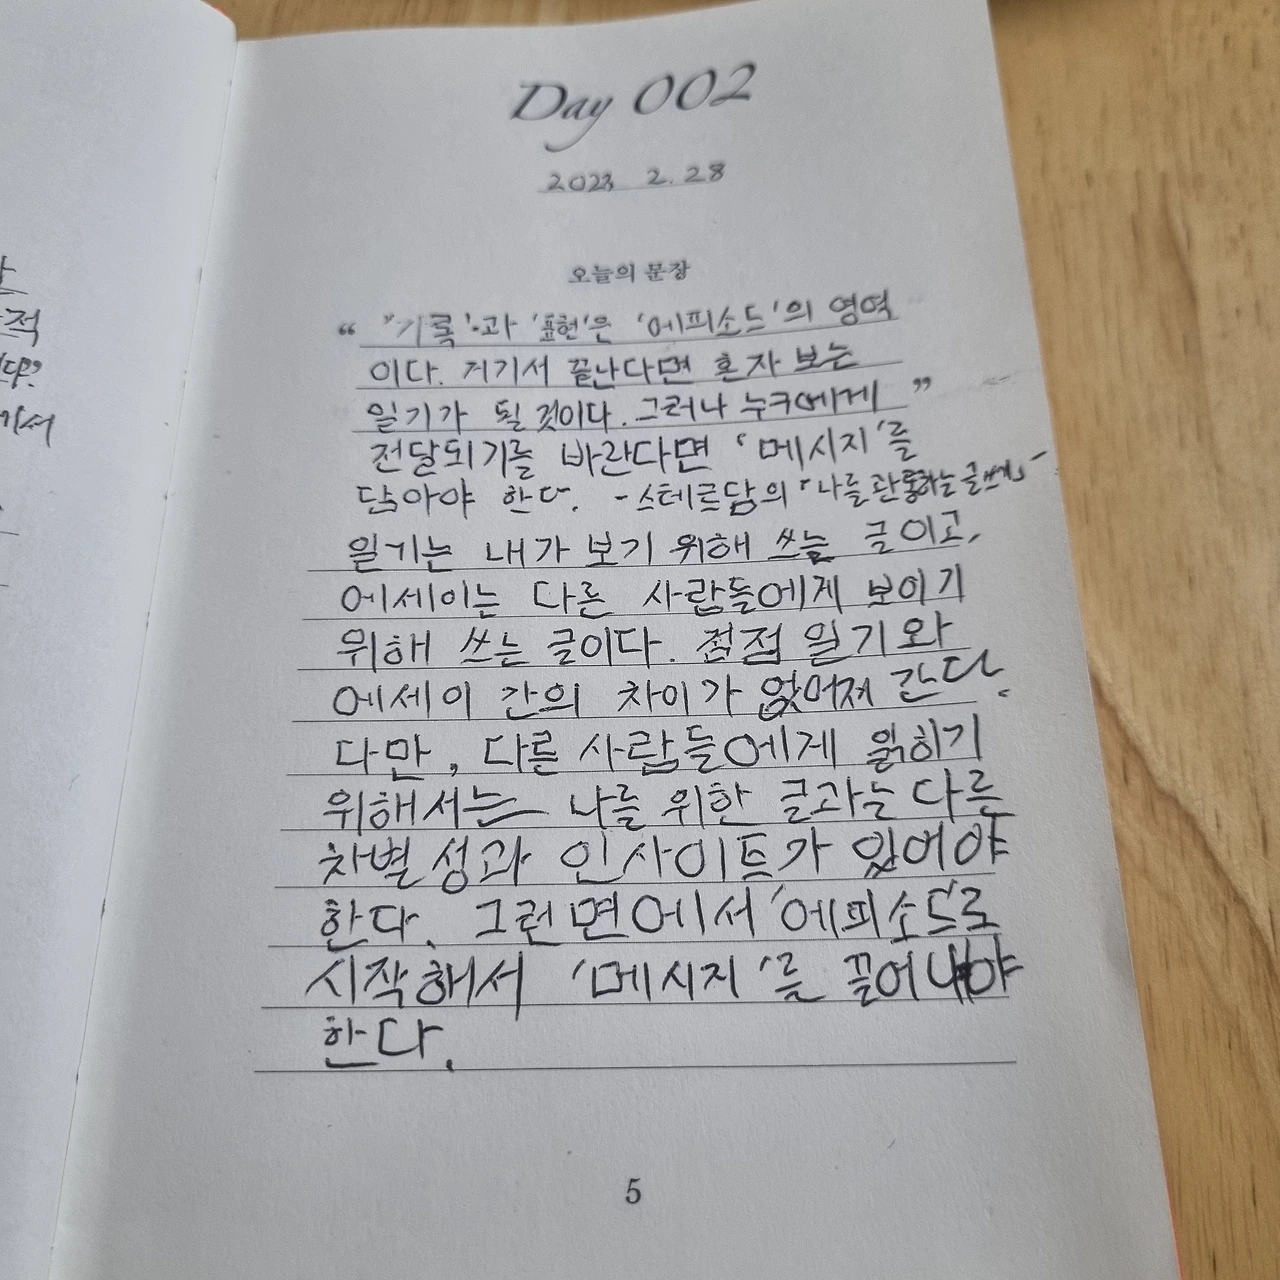 적
Day 002
2023 2.28
오늘의 문장
“ '기록'과 '표현'은 '에피소드'의 영역
이다. 거기서 끝난다면 혼자 보는
일기가 될 것이다. 그러나 누구에게 ”
전달되기를 바란다면 '메시지'를
담아야 한다. - 스테르담의 「나를 관통하는 글쓰기」
일기는 내가 보기 위해 쓰는 글이고,
에세이는 다른 사람들에게 보이기
위해 쓰는 글이다. 점점 일기와
에세이 간의 차이가 없어져 간다.
다만, 다른 사람들에게 읽히기
위해서는 나를 위한 글과는 다른
차별성과 인사이트가 있어야
한다. 그런 면에서 '에피소드'로
시작해서 '메시지'를 끌어내야
한다.
5